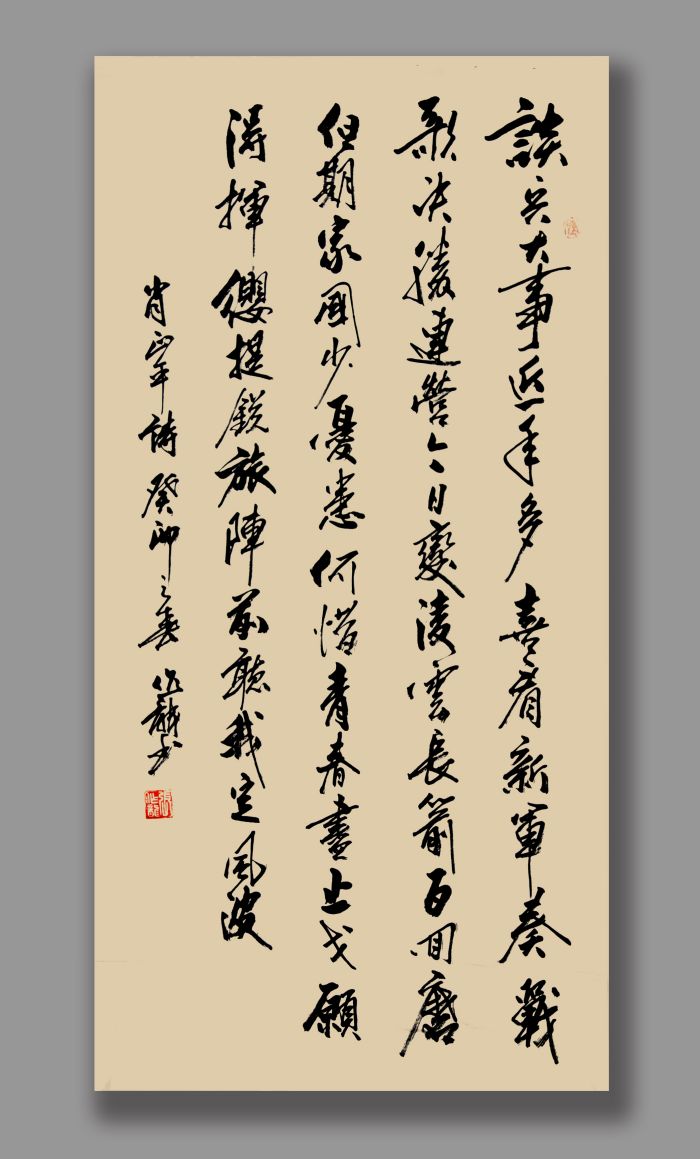 談兵大事近年多喜看新軍奏戰
歌决勝連營今日變凌雲長箭百回磨
但期家國少憂患何惜青春盡止戈願
得揮纓提銳旅陣前聽我定風波
肖 詩癸卯之春 龍書